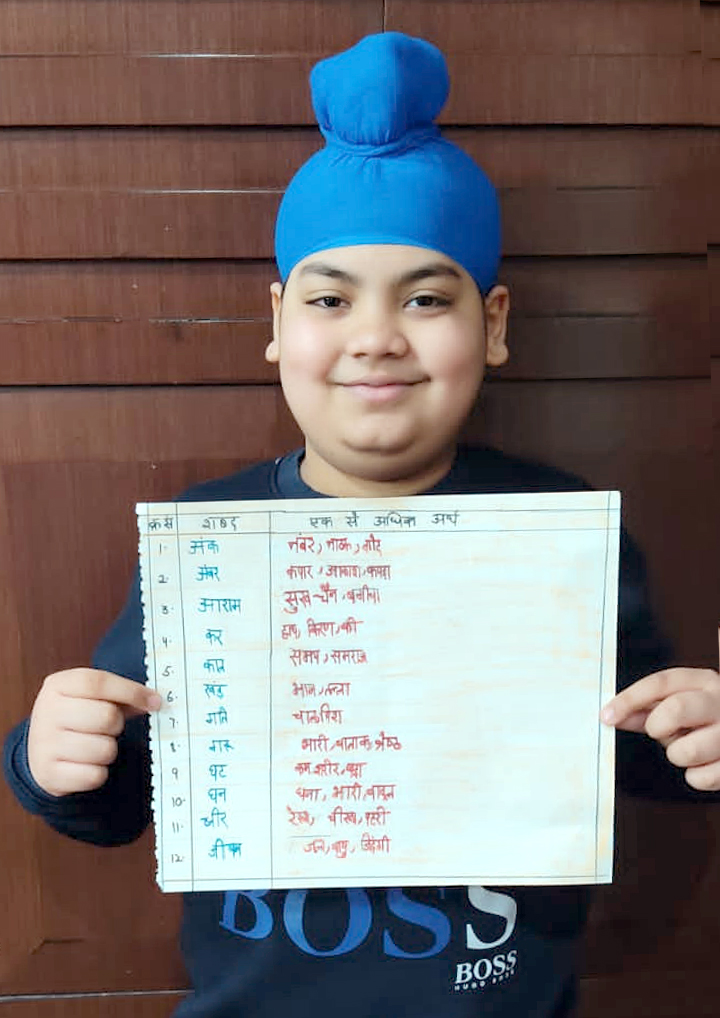 क्रस शब्द एक से अधिक अर्थ
1. अंक नंबर, नाक,
2. अंबर आकाश,
3. आराम सुख-चैन, बगीचा
4. कर हाथ, किरण,
5. काल समय,
6. खंड भाग,
7. गति चाल
8. गुरू भारी, श्रेष्ठ
9 घट कम, शरीर, घड़ा
10. घन घना, भारी, बादल
11. चीर
12. जीवन जल, वायु, जिंदगी
BOSS
BOSS
HUGO BOSS